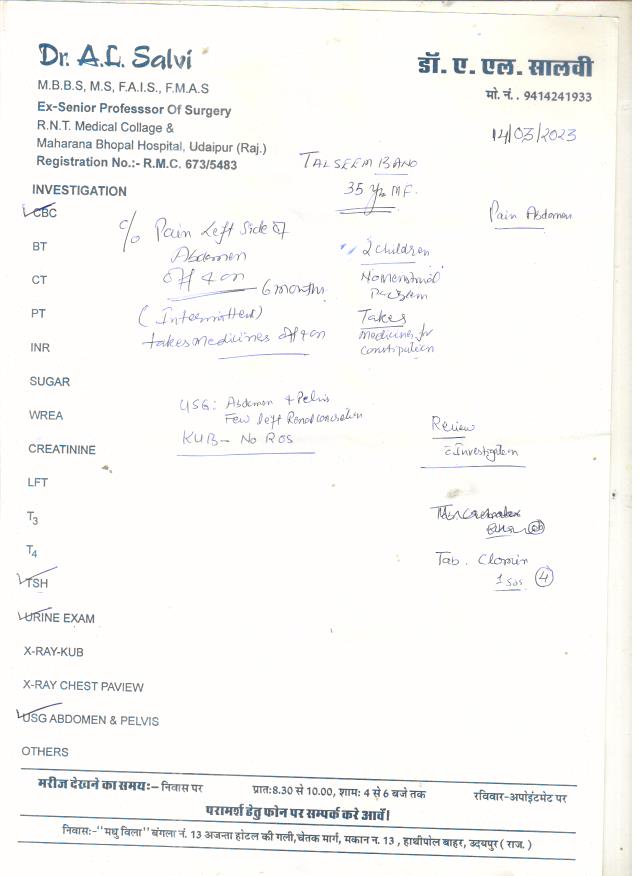 Dr. A.L. Salvi
M.B.B.S, M.S, F.A.I.S., F.M.A.S
Ex-Senior Professsor Of Surgery
R.N.T. Medical Collage &
Maharana Bhopal Hospital, Udaipur (Raj.)
Registration No.:- R.M.C. 673/5483
डॉ. ए. एल. सालवी
मो. नं. . 9414241933
14/03/2023
TALSEEM BANO
35 Yrs MF.
Pain Abdomen
INVESTIGATION
CBC
BT
CT
PT
INR
SUGAR
WREA
CREATININE
LFT
T3
T4
TSH
URINE EXAM
X-RAY-KUB
X-RAY CHEST PAVIEW
USG ABDOMEN & PELVIS
OTHERS
c/o Pain Left Side of
Abdomen
off & on
6 months
(Intermittent)
takes medicines off & on
2 children
No menstrual
Problem
Takes
Medicines for
constipation
USG: Abdomen & Pelvis
Few left Renal concretion
KUB - No ROS
Review
c Investigation
Tab. Clomin
1 SOS 4
मरीज देखने का समय:– निवास पर प्रात:8.30 से 10.00, शाम: 4 से 6 बजे तक रविवार-अपोइंटमेट पर
परामर्श हेतु फोन पर सम्पर्क करे आवें।
निवास:-"मधु विला" बंगला नं. 13 अजन्ता होटल की गली,चेतक मार्ग, मकान न. 13 , हाथीपोल बाहर, उदयपुर ( राज. )